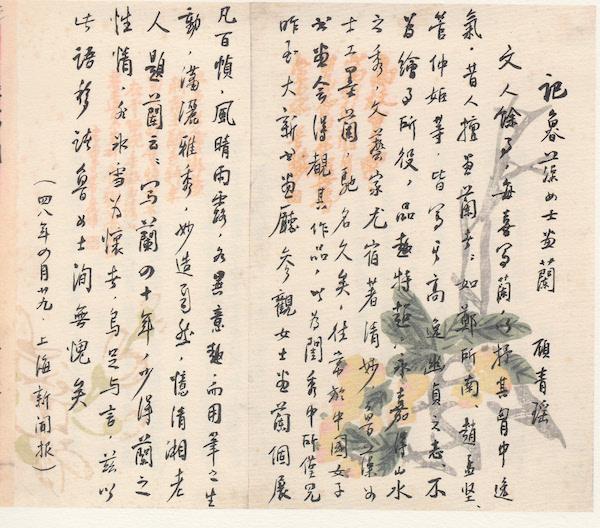 記魯藻女士画蘭
顧青瑤
文人餘事，每喜寫蘭，以抒其胷中逸
氣，昔人擅画蘭者，如鄭所南、趙孟坚、
管仲姬等，皆寫其高逸幽貞之志，不
為繪事所役，品趣特超，永嘉得山水
之秀，文藝家尤宿著清妙，魯藻女
士工墨蘭，馳名久矣，往常於中國女子
书画会得觀其作品，以為閨秀中所僅見
昨至大新书画廳參觀女士画蘭個展
凡百幀，風晴雨露，各異意趣，而用筆之生
動，瀟灑雅秀，妙造自然，憶清湘老
人題蘭云：寫蘭四十年，少得蘭之
性情，非氷雪为懷者，烏足与言，兹以
此語移諸魯女士洵無愧矣
（四八年四月廿九，上海新聞報）